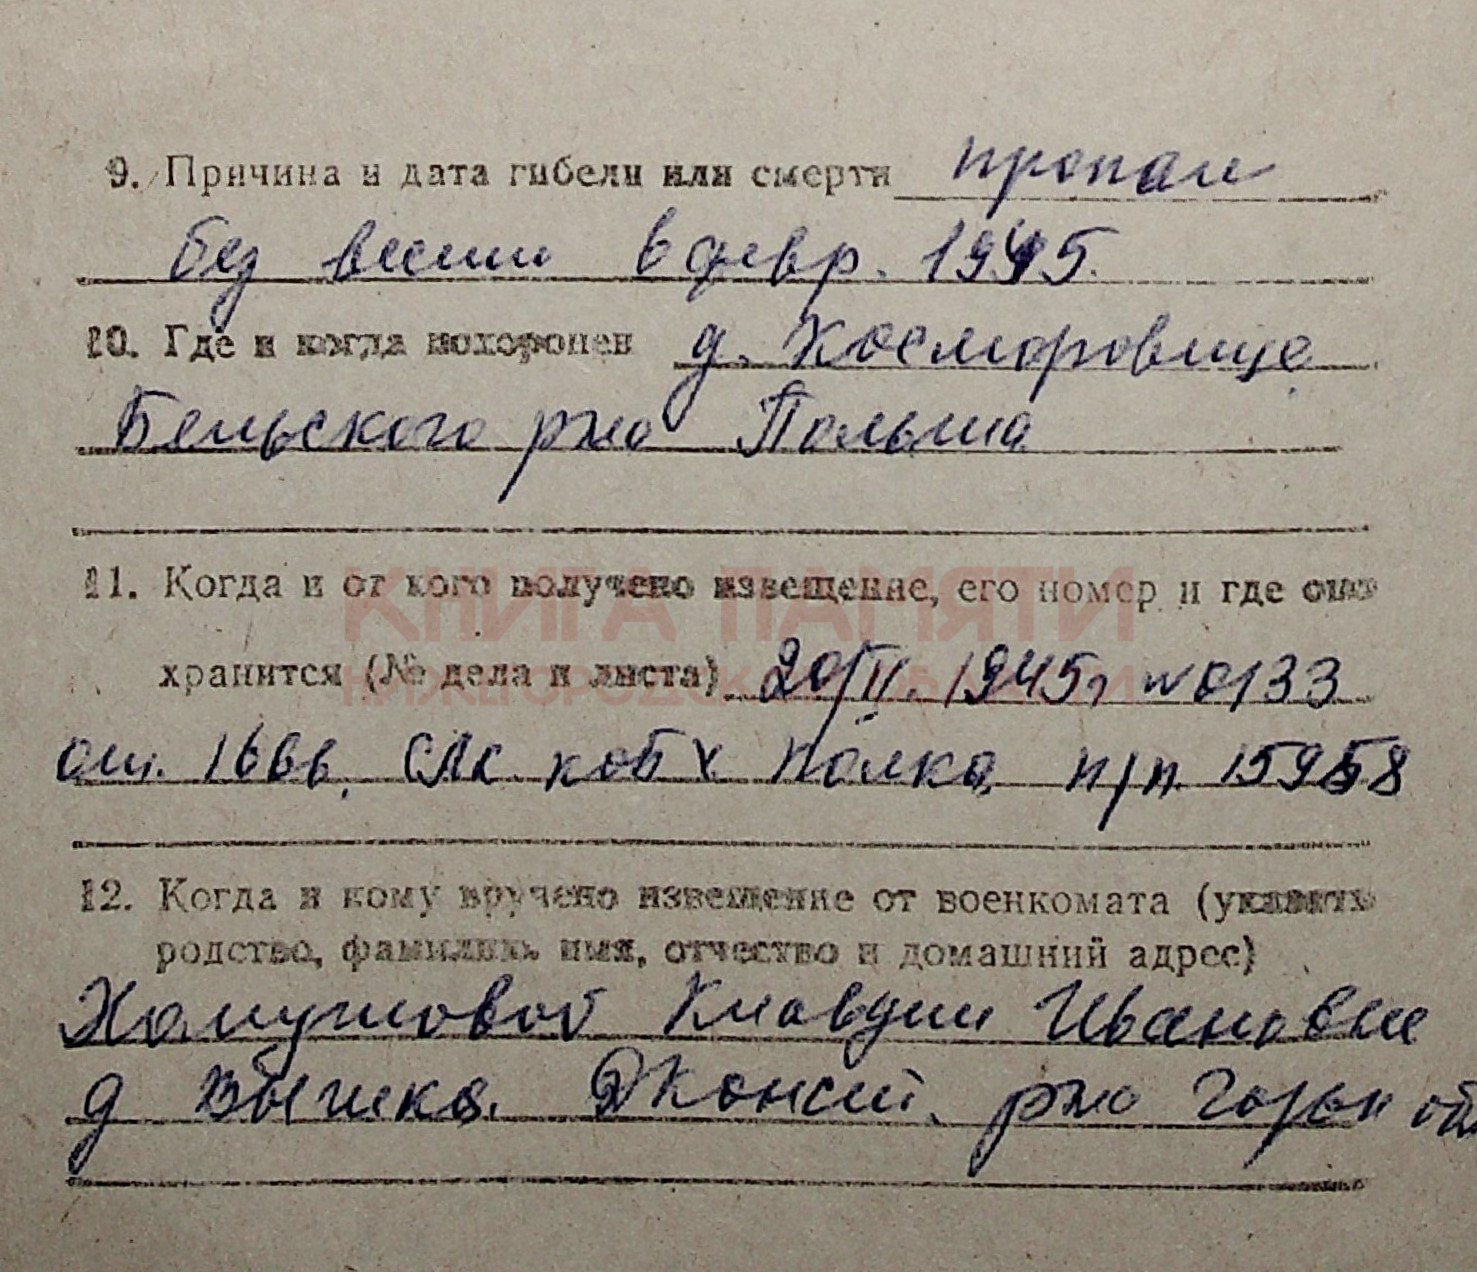 9. Причина и дата гибели или смерти пропал
без вести в февр. 1945.
10. Где и когда похоронен д. Косморовице
Бельского р-но Польша
11. Когда и от кого получено извещение, его номер и где оно
КНИГА ПАМЯТИ
хранится (№ дела и листа) 20/II. 1945г N 0133
НИЖЕГОРОДСКОЙ ОБЛАСТИ
от. полка п/п. 15958
12. Когда и кому вручено извещение от военкомата (указать
родство, фамилия, имя, отчество и домашний адрес)
Хомутовой Клавдии Ивановне
д р-но Горьк обл